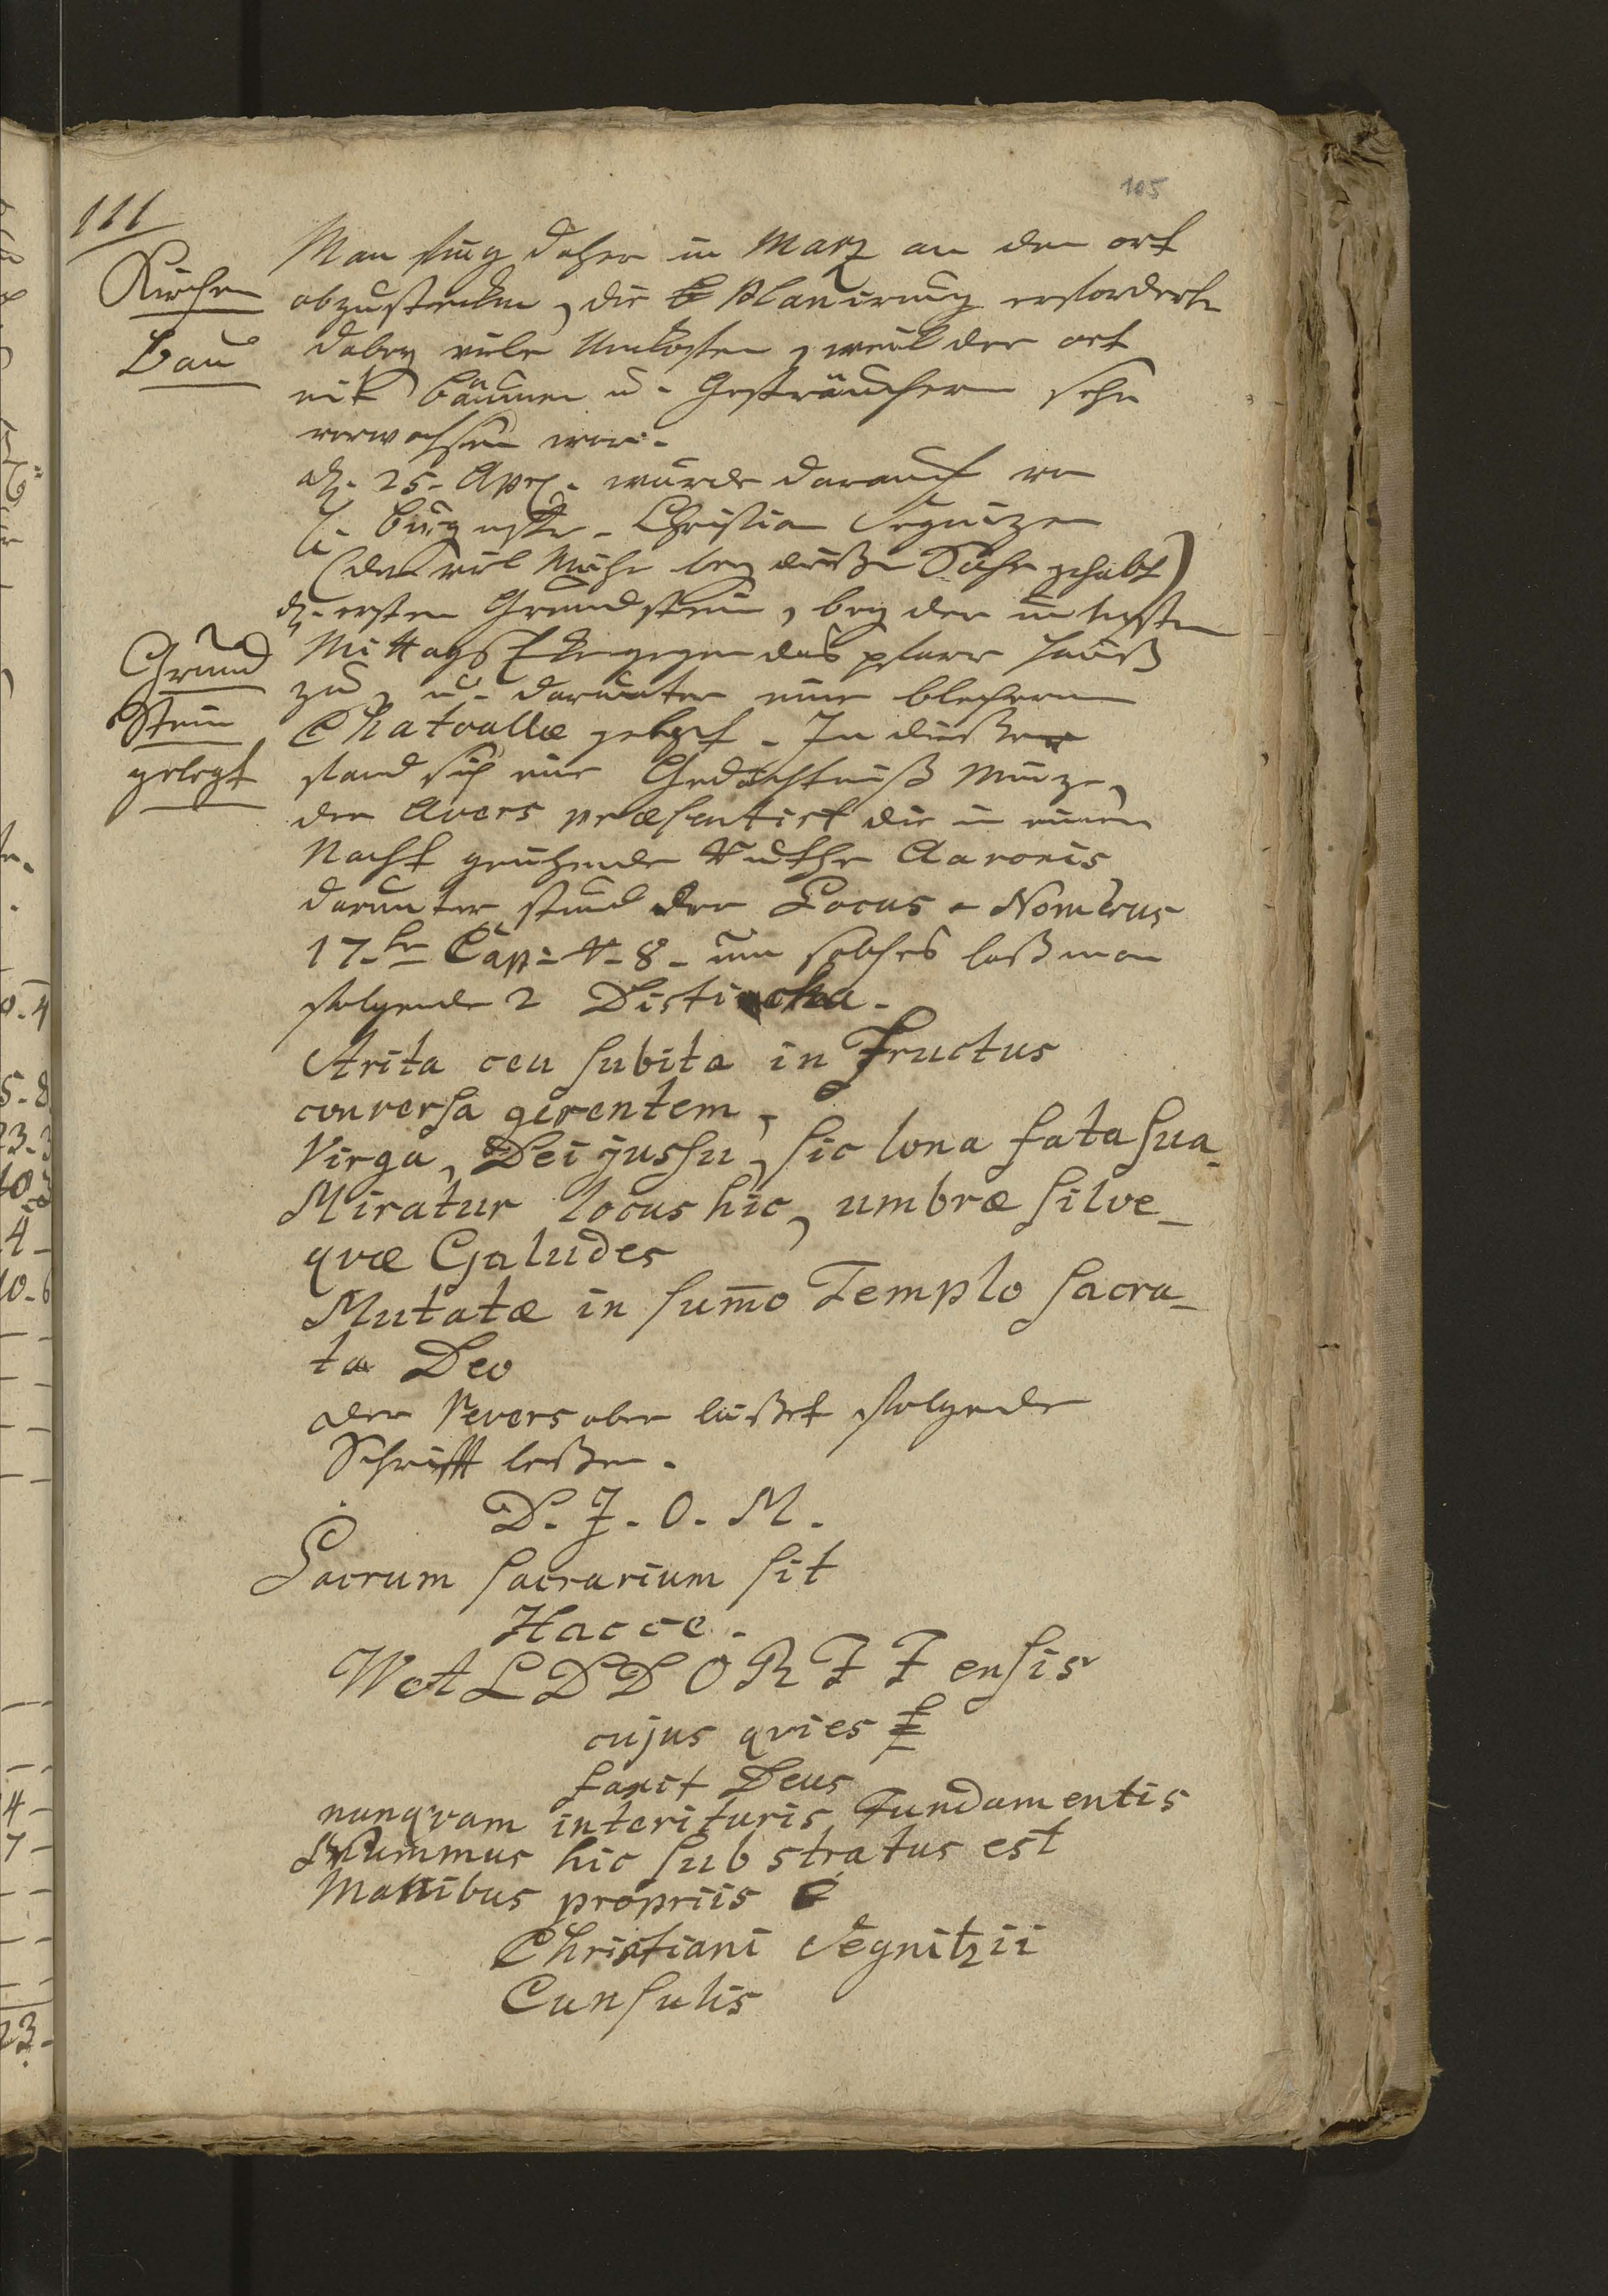 105
111
Kirchen
Bau
Man fing daher in Martz an den ort
abzustecken, die Planirung erforderte
dabey viele Unkosten, weil der ort
mit bäumen u. Gesträuchern sehr
verwachsen war.
dh. 25. Apr. wurde darauf von
H. Burgmstr. Christian Segnizen
(der viel Mühe bey dießer Sache gehabt)
dh. ersten Grundstein, bey der
Mittags Ecke gegen das pfarr hauß
zu, u. darunter eine blecherne
Grund
Stein
gelegt
Chatoulle gelegt. In dießer
fand sich eine Gedächtniß Münze,
der Avers præsentirt die in einer
Nacht grühnende Ruthe Aaronis
darunter stund der Locus e Nomerus
17. Cap: V. 8. um solches laß man
folgende 2 Disticha.
Arita ceu subita in Fructus
conversa gerentem,
Virga, Dei jussu, sic bona fata sua
Miratur locus hic, umbræ silve_
qvæ Galudes
Mutatæ in sum̄o Templo sacra_
ta Deo
der Revers aber läßet folgende
Schrifft leßen.
D. J. O. M.
Sacrum sacrarium sit
Hacce.
WALDDORFF ensis
cujus qvies
faxit Deus
nunqvam interituris Fundamentis
Nummus hic substratus est
Manibus propriis
Christiani Segnitzii
Cunsulis